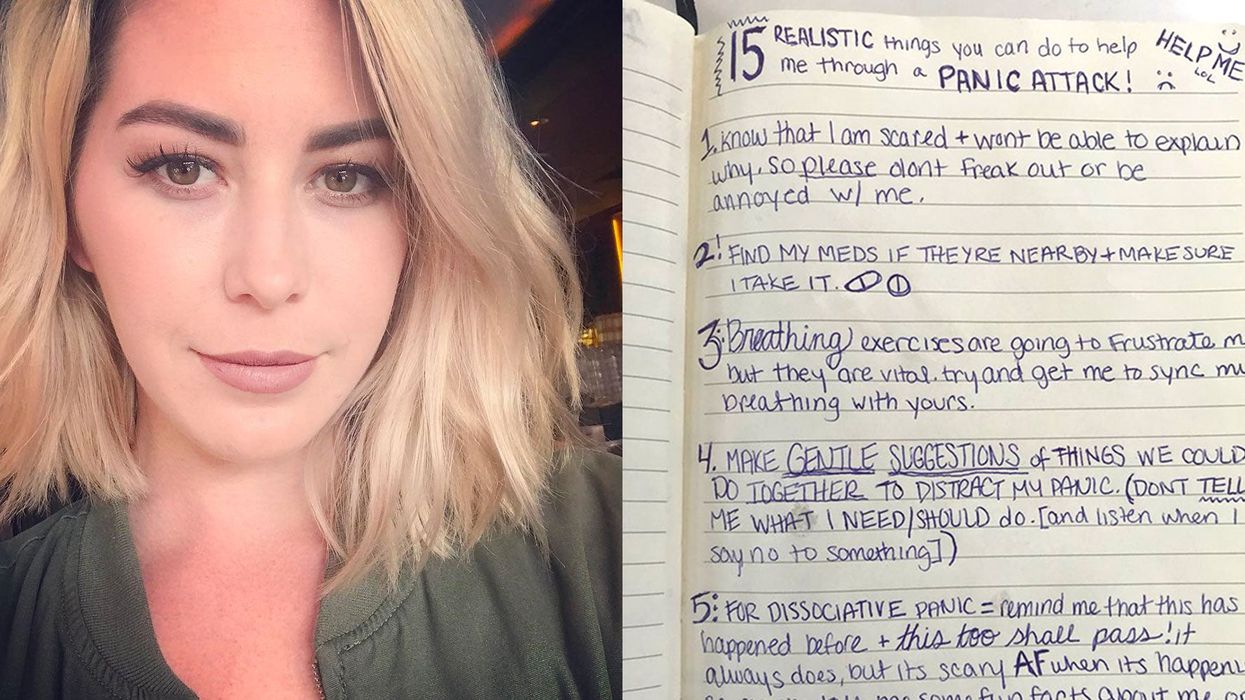 15 REALISTIC things you can do to help
me through a PANIC ATTACK!
HELP ME
LOL
1. Know that I am scared + wont be able to explain
why. so please dont freak out or be
annoyed w/ me.
2! FIND MY MEDS IF THEYRE NEARBY + MAKE SURE
I TAKE IT.
3: Breathing exercises are going to frustrate
but they are vital. try and get me to sync
breathing with yours.
4. MAKE GENTLE SUGGESTIONS of THINGS WE COULD
DO TOGETHER TO DISTRACT MY PANIC. (DONT TELL
ME WHAT I NEED/SHOULD do. [and listen when I
say no to something])
5: FOR DISSOCIATIVE PANIC = remind me that this has
happened before + this too shall pass! it
always does, but its scary AF when its
some fun facts about me